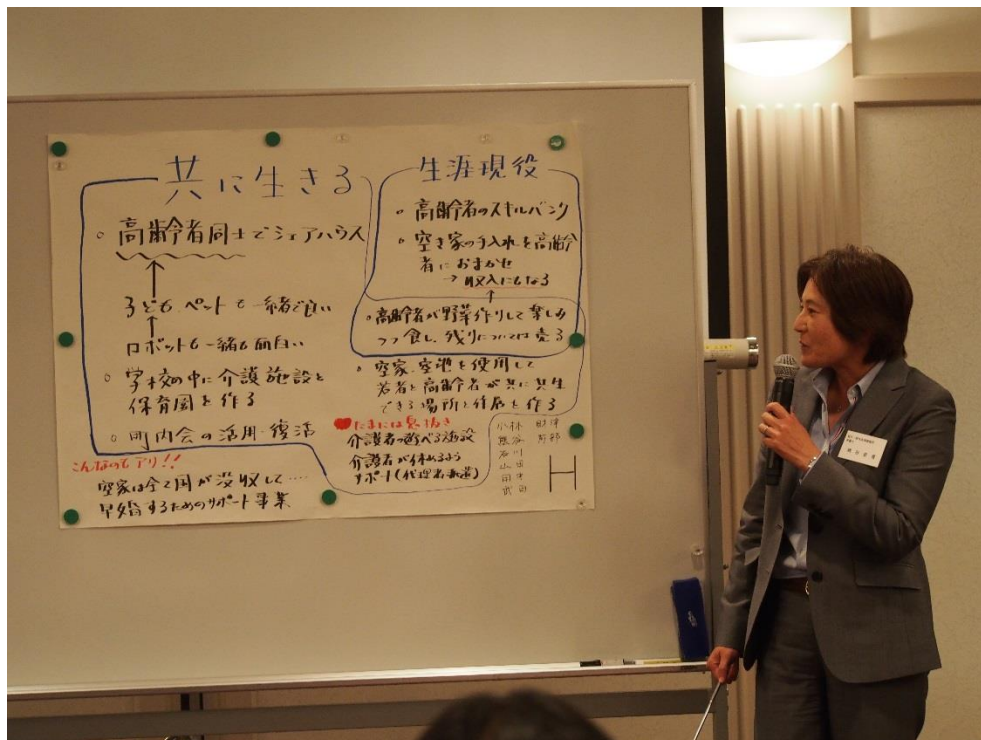 共に生きる
。高齢者同士でシェアハウス
子ども、ペットも一緒で良い
ロボットも一緒も面白い
。学校の中に介護施設と
保育園を作る
。町内会の活用・復活
こんなのもアリ!!
空家は全て国が没収して‥‥
早婚するためのサポート事業
生涯現役
。高齢者のスキルバンク
。空き家の手入れを高齢
者におまかせ
→収入にもなる
。高齢者が野菜作りして楽しみ
つつ食し、残りについては売る
。空家、空地を使用して
若者と高齢者が共に共生
できる場所と住居を作る
たまには息抜き
介護者の遊べる施設
介護者が休めるよう
サポート(代理者派遣)
小林
熊谷
石川
山田
H